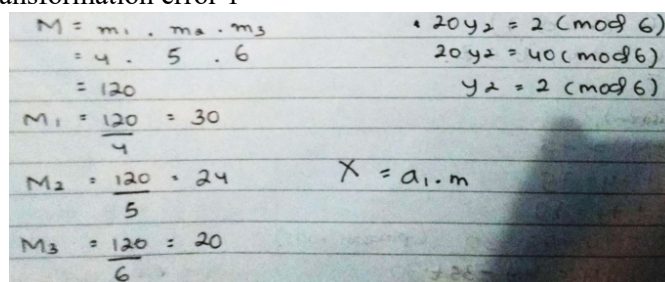 ansformation error 1
M = m₁ . m₂ . m₃
= 4 . 5 . 6
= 120
M₁ = 120/4 = 30
M₂ = 120/5 = 24
M₃ = 120/6 = 20
• 20y₂ = 2 (mod 6)
20y₂ = 40 (mod 6)
y₂ = 2 (mod 6)
X = a₁ . m